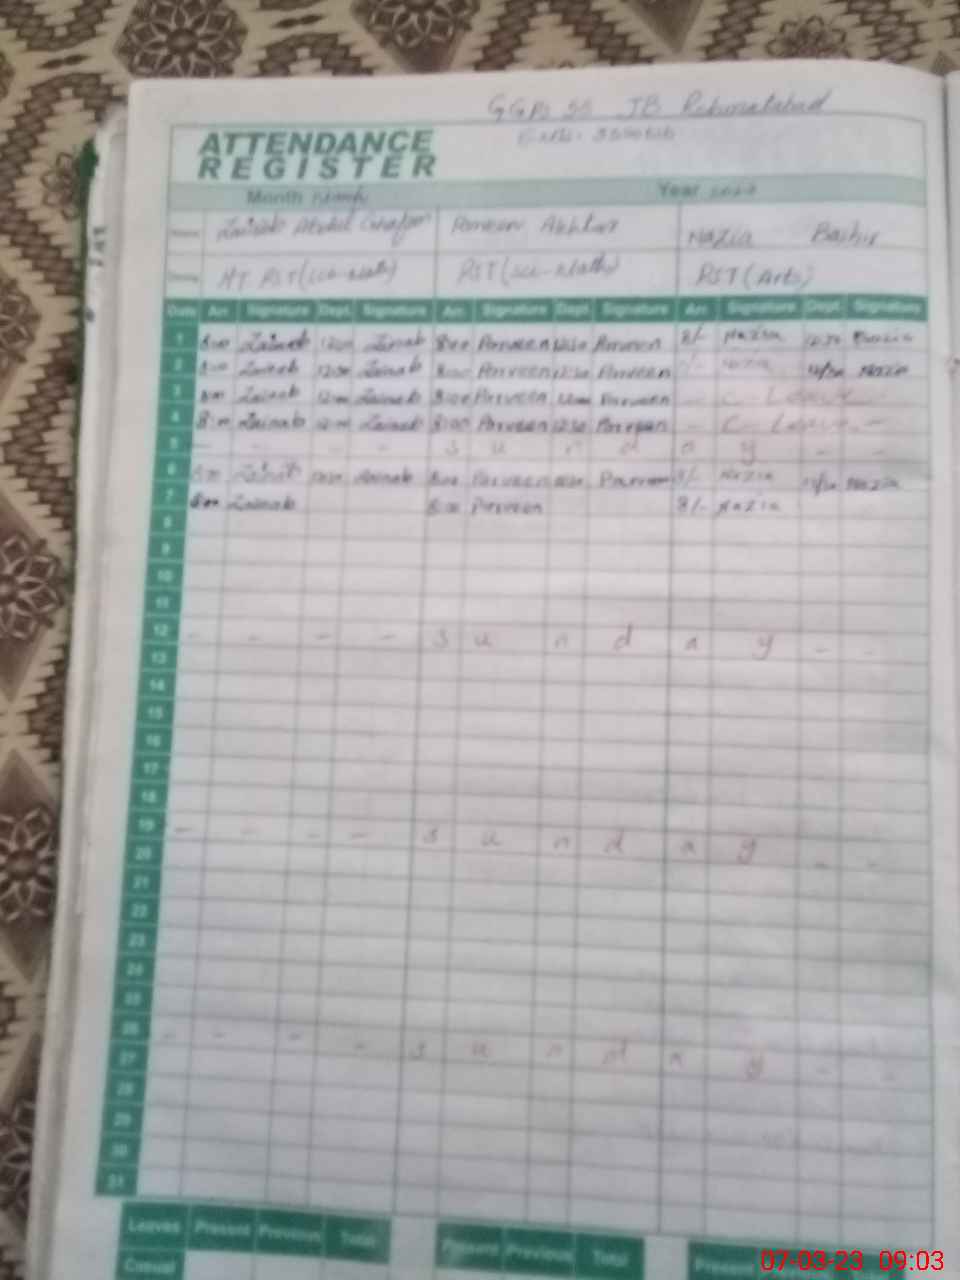 JB
ATTENDANCE
REGISTER
Month Year
Zainab Abdul Parveen Akhtar Nazia Bashir
PST (Arts)
Date Arr. Signature Dept. Signature Arr. Signature Dept. Signature Arr. Signature Dept. Signature
1 8:00 Zainab Zainab 8:00 Parveen 12:30 Parveen 8/- Nazia
2 8:00 Zainab 12:30 Zainab 8:00 Parveen 12:30 Parveen Nazia 12/30 Nazia
3 Zainab Zainab 8:00 Parveen Parveen - C - Leave -
4 Zainab Zainab 8:00 Parveen 12:30 Parveen - C - Leave -
5 - - - - S u n d a y - -
6 Zainab Zainab 8:00 Parveen Parveen 8/- Nazia Nazia
7 8:00 Zainab 8:00 Parveen 8/- Nazia
8
9
10
11
12 - - - - S u n d a y - -
13
14
15
16
17
18
19 - - - - S u n d a y - -
20
21
22
23
24
25
26 - - - - S u n d a y - -
27
28
29
30
31
Leaves Present Previous Total Present Previous Total Present
Casual
07-03-23 09:03